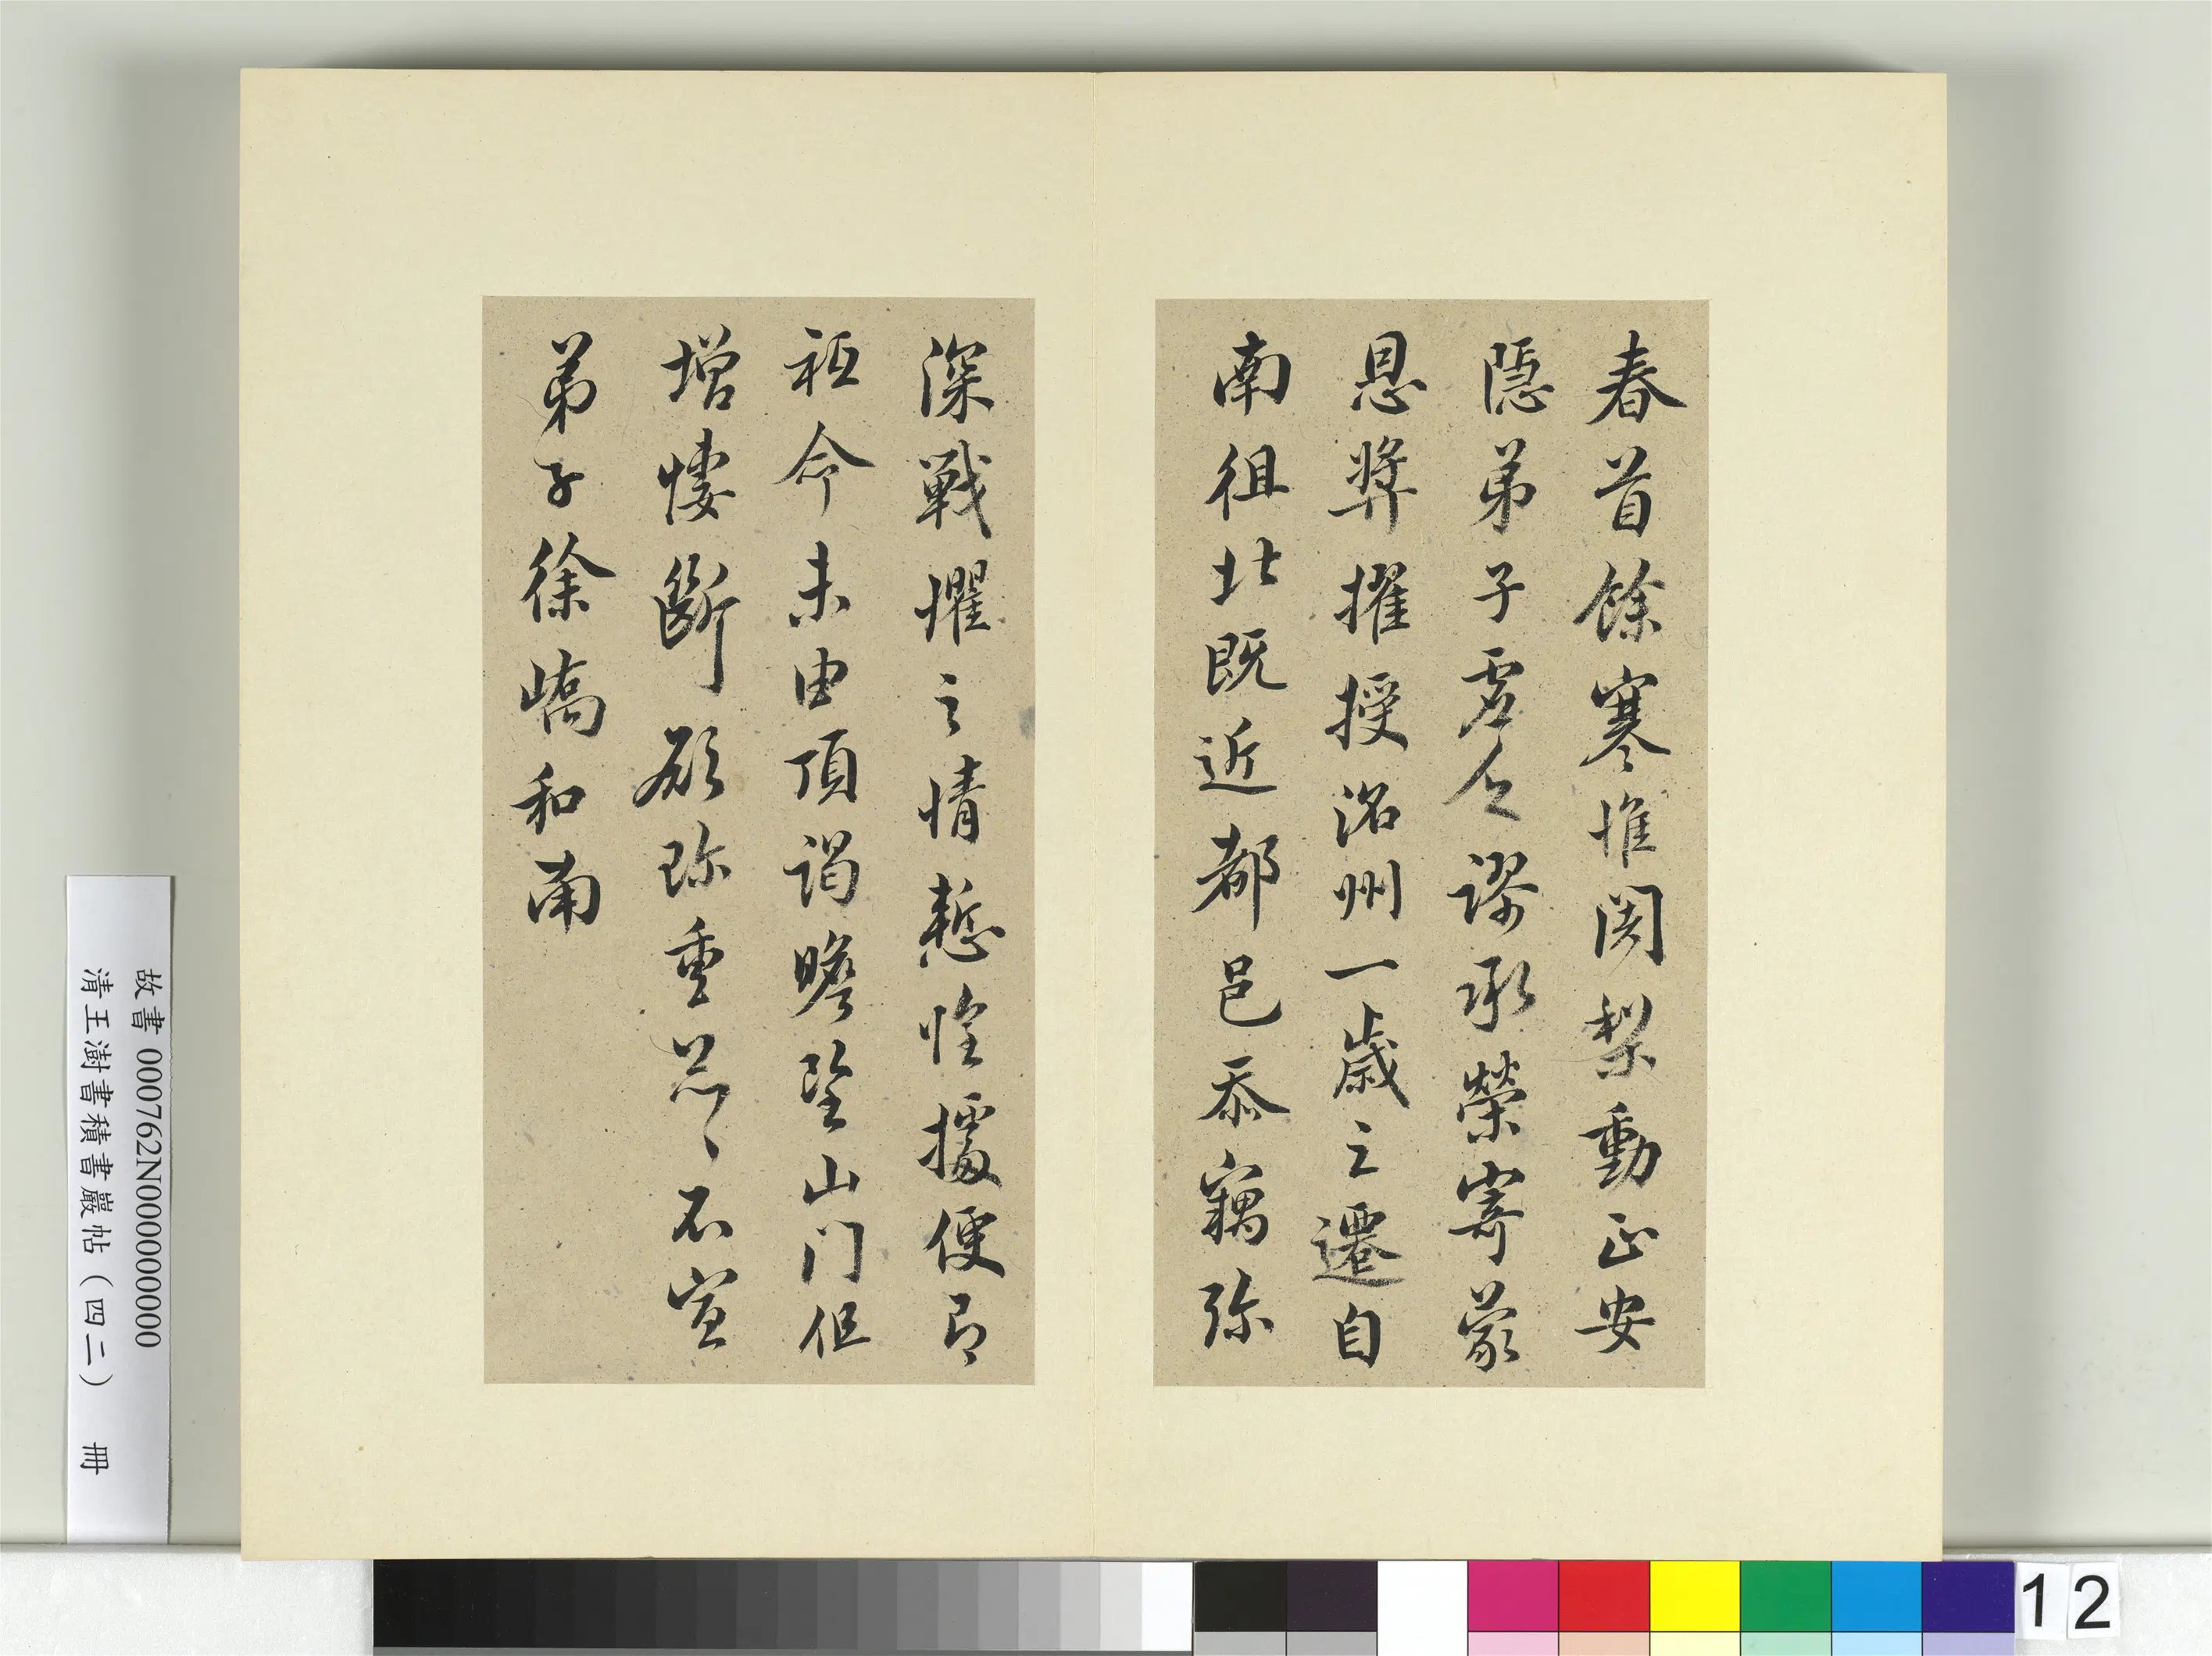 春首餘寒惟闍梨動止安
隱弟子虛乏謬承榮寄蒙
恩奬擢授洺州一歲之遷自
南徂北既近都邑忝竊弥
深戰懼之情慙惶據便即
祗命未由頂謁瞻望山門但
增悽斷願珍重忩〻不宣
弟子徐嶠和南
故書 000762N000000000
清王澍書積書巖帖（四二） 冊
12